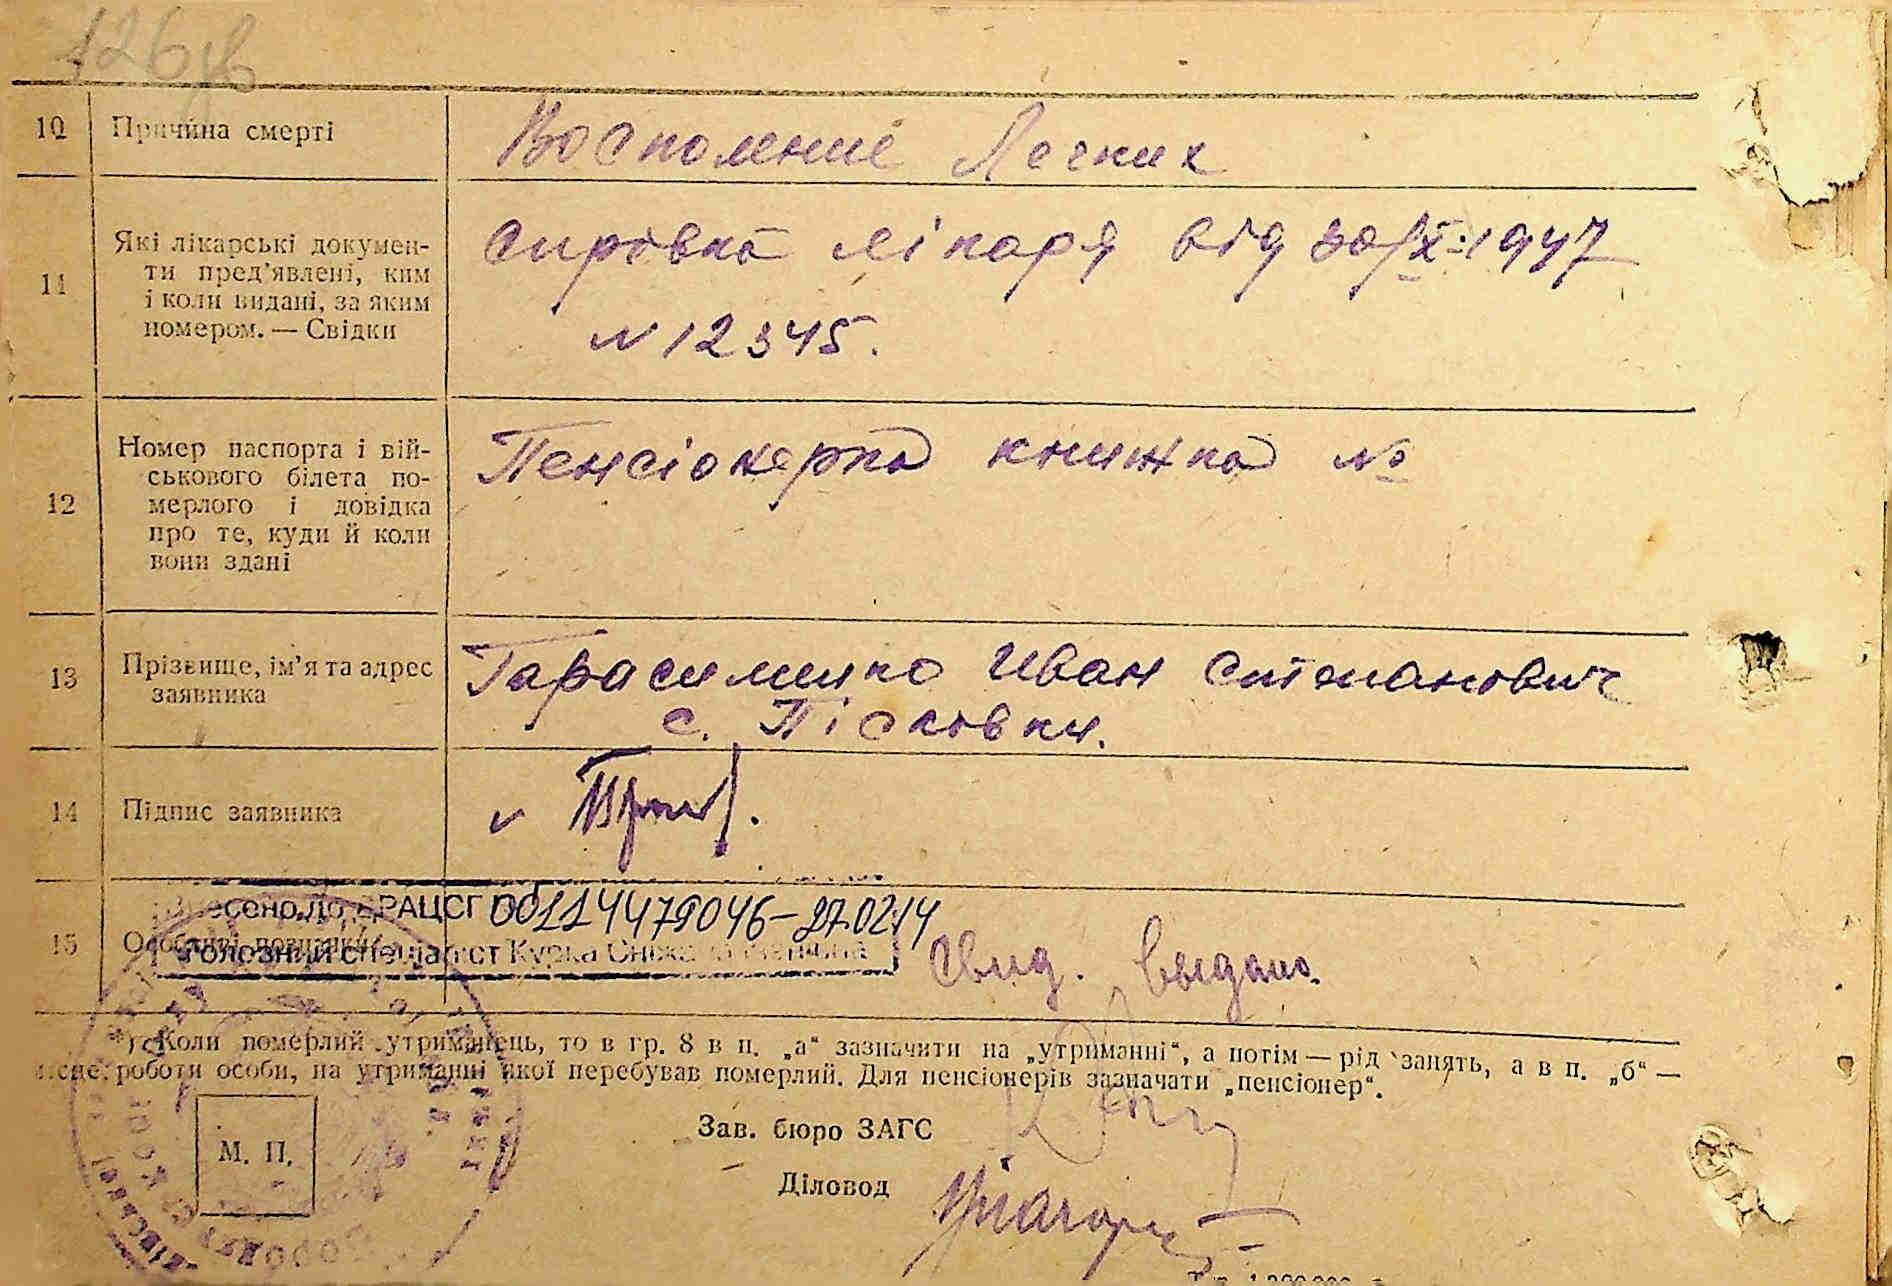 126
10 Причина смерті
Восполение Легких
11 Які лікарські докумен-
ти пред'явлені, ким
і коли видані, за яким
номером. — Свідки
справка лікаря від 30/X-1947
N 12345.
12 Номер паспорта і вій-
ськового білета по-
мерлого і довідка
про те, куди й коли
вони здані
Пенсіонерна книжка №
13 Прізвище, ім'я та адрес
заявника
Гарасименко Иван Степанович
с. Пісковки.
14 Підпис заявника
15 Особливі позначки
несено до ДРАЦСГ 00114479046-27.02.14
Головний спеціаліст Курка
Свид. выдано.
*) Коли померлий утриманець, то в гр. 8 в п. „а“ зазначити на „утриманні“, а потім — рід занять, а в п. „б“ —
місце роботи особи, на утриманні якої перебував померлий. Для пенсіонерів зазначати „пенсіонер“.
М. П.
Зав. бюро ЗАГС
Діловод